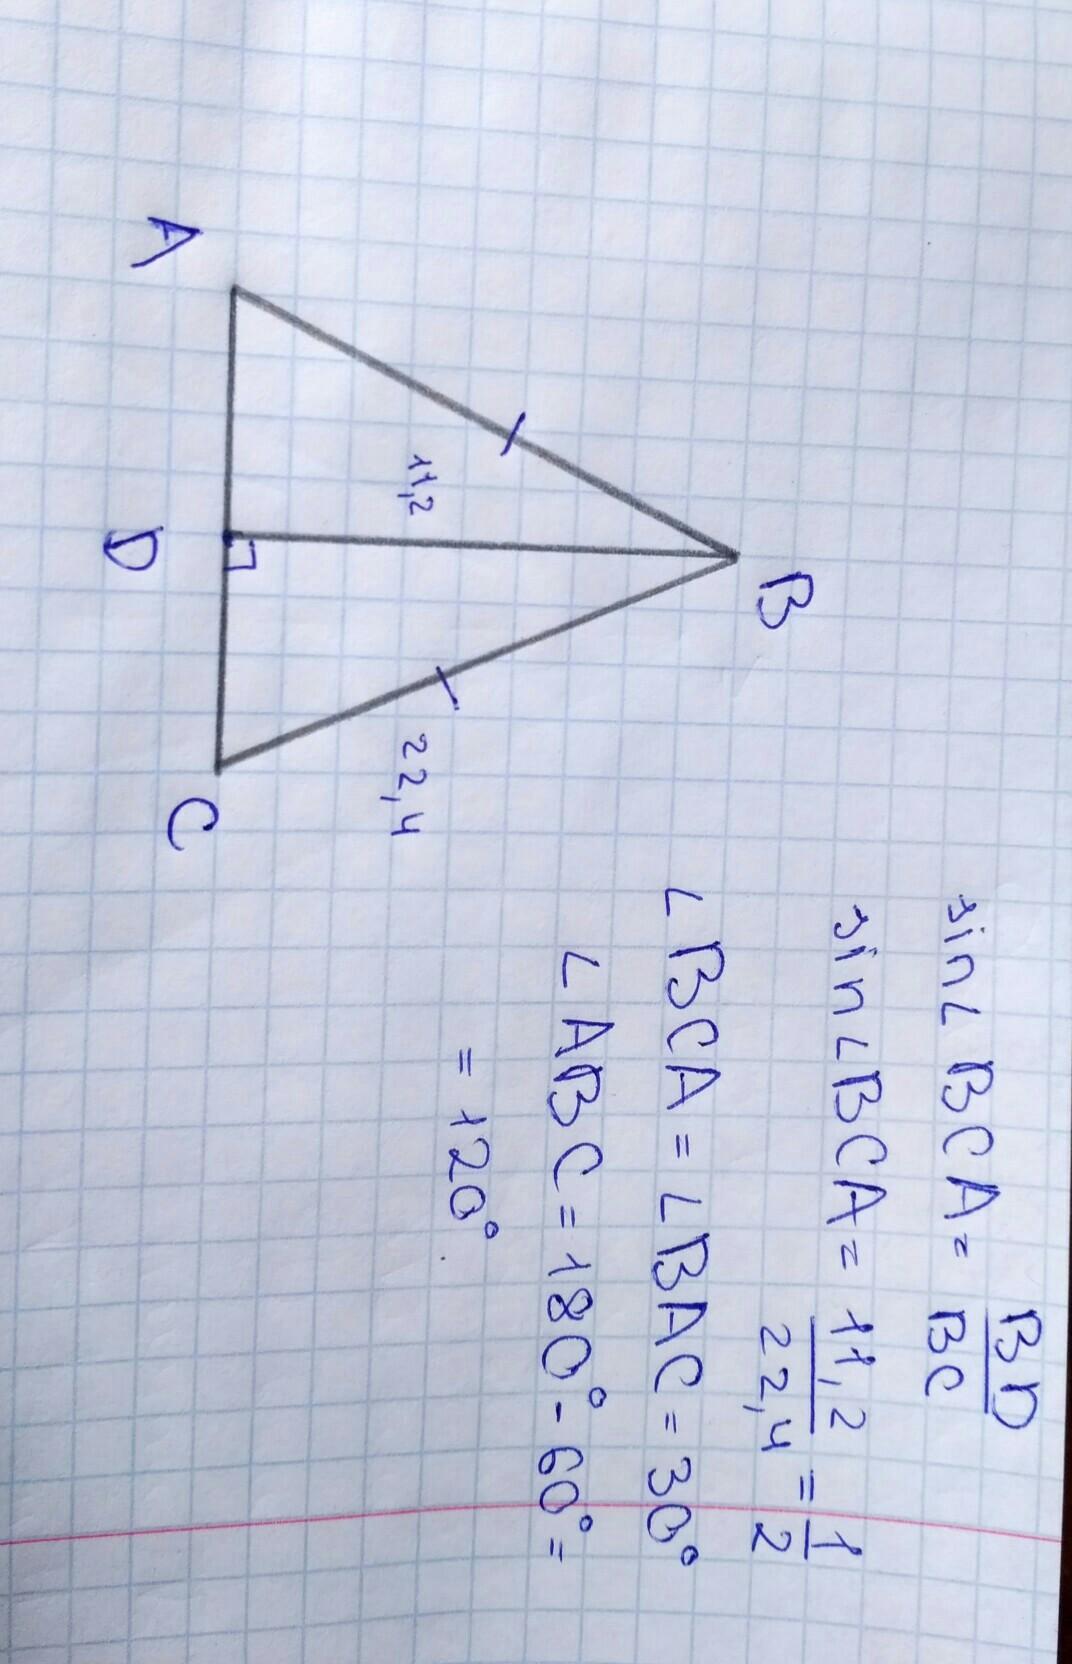 B
11,2
22,4
A
D
C
sin∠BCA = BD/BC
sin∠BCA = 11,2/22,4 = 1/2
∠BCA = ∠BAC = 30°
∠ABC = 180° - 60° =
= 120°